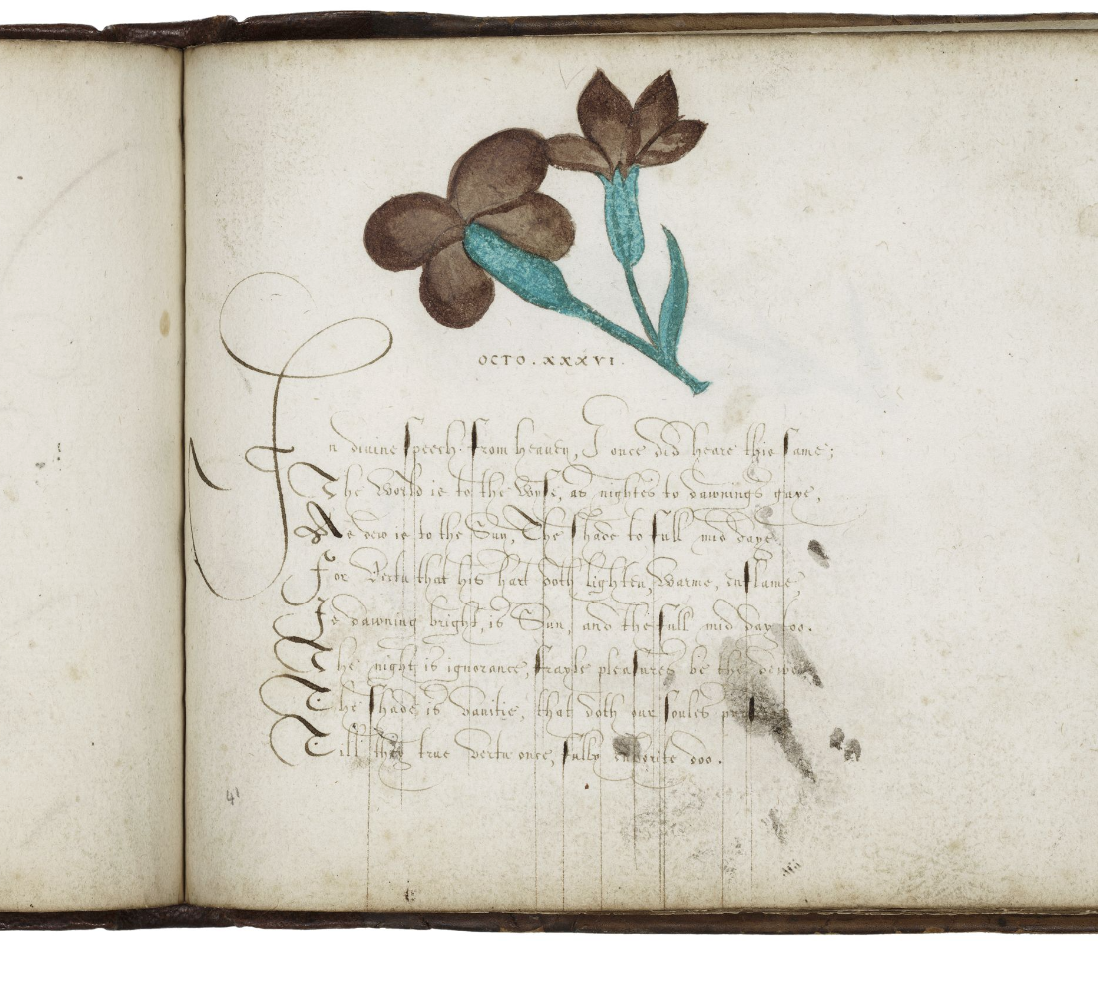 OCTO. XXXVI.
In divine speech from heaven, I once did heare this same;
The world is to the wyse, as nightes to dawnings gaye,
The dew is to the Sun, The shade to full mid daye
For Vertu that his hart doth lighten, warme, enflame,
Is dawning bright, is Sun, and the full mid day too.
The night is ignorance, frayle pleasures be the dewe
The shade is Vanitie, that doth our soules
Till they true vertu once, fully doo.
41